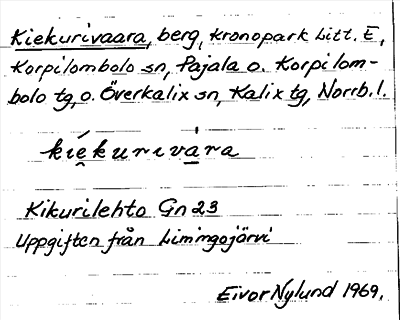 Kiekurivaara, berg, kronopark Litt. E,
Korpilombolo sn, Pajala o. Korpilom-
bolo tg, o. Överkalix sn, Kalix tg, Norrb. l.
kíe̮kuriva̱̍ra
Kikurilehto Gn 23
Uppgiften från Limingojärvi
Eivor Nylund 1969.